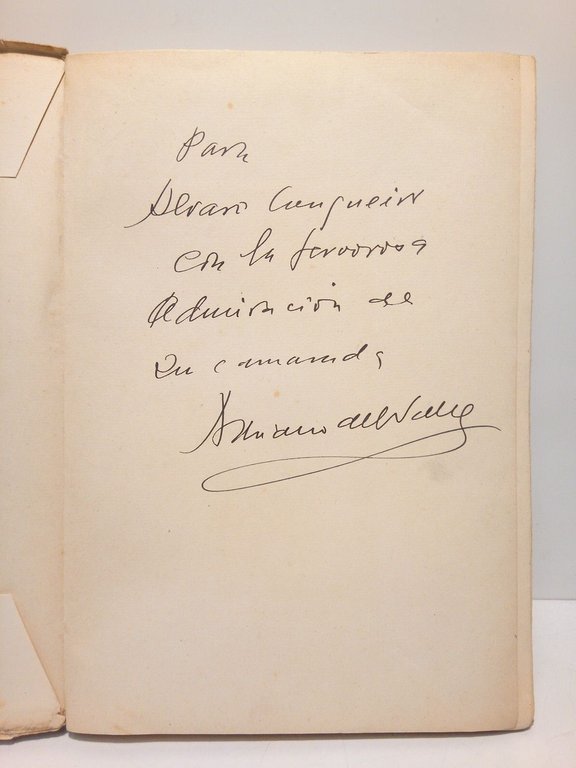 Para
Alvaro Cunqueiro
con la fervorosa
admiración de
su camarada
Adriano del Valle